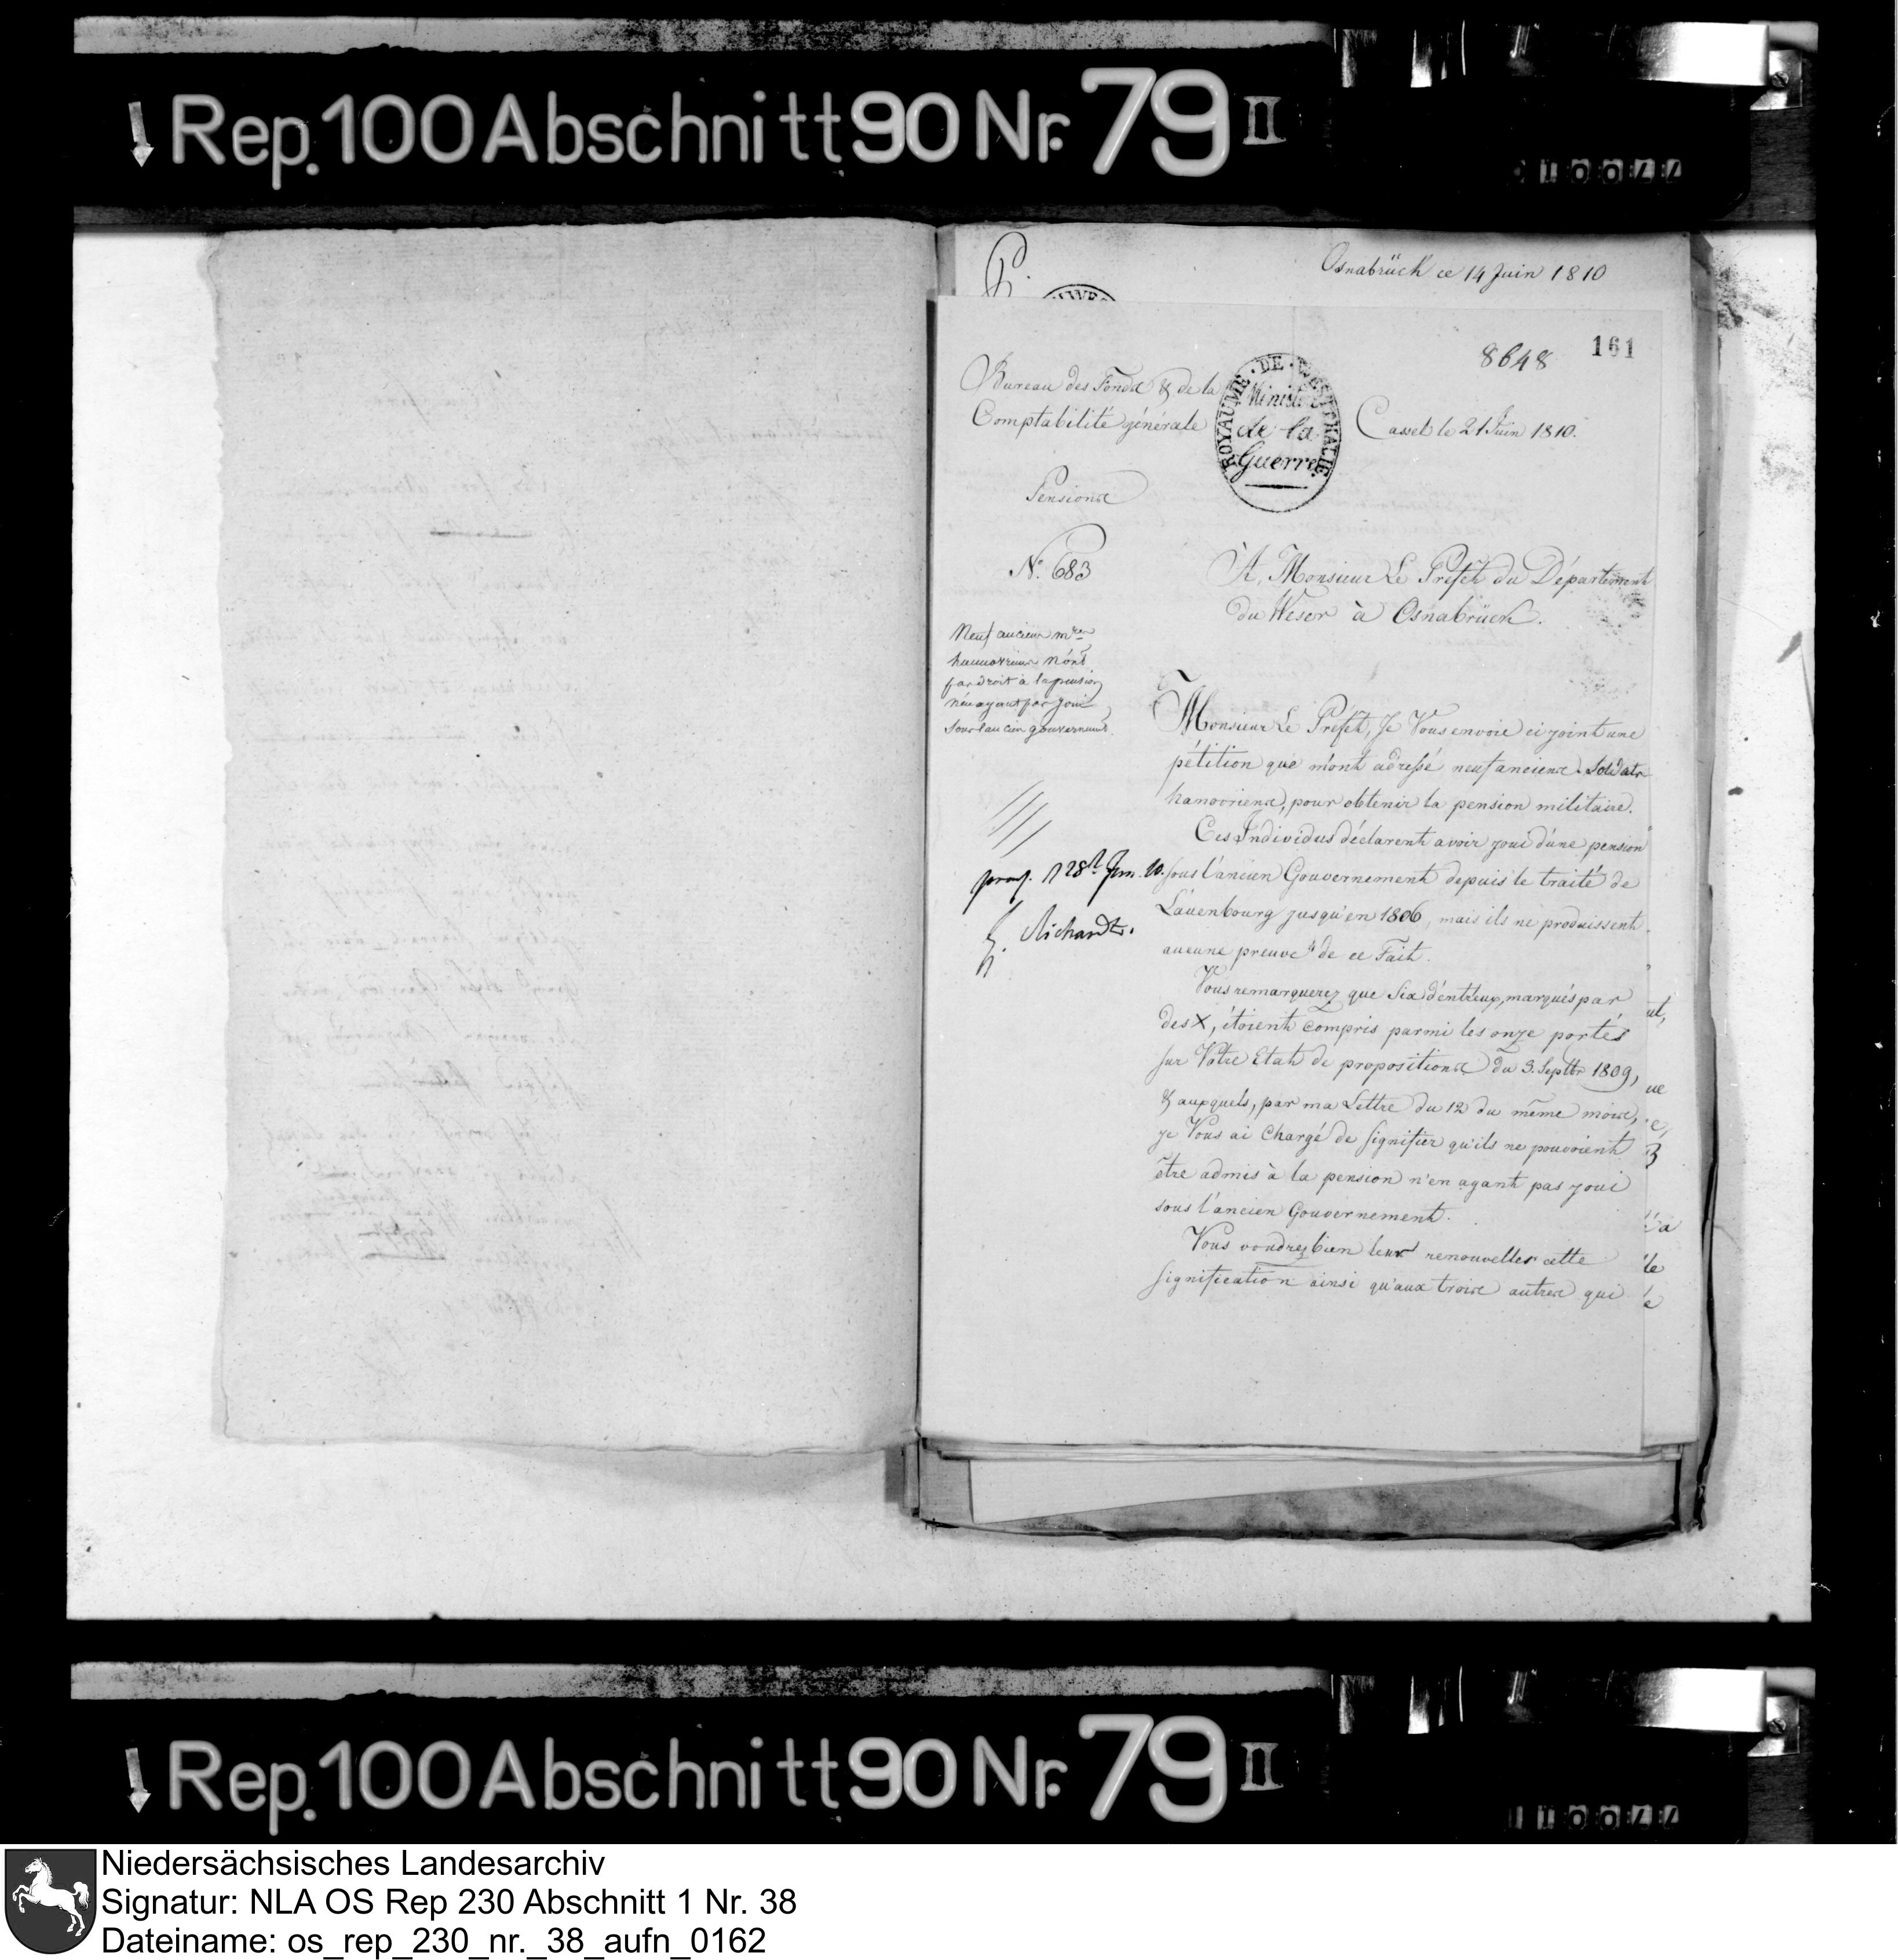 Rep. 100 Abschnitt 90 Nr. 79 II
Osnabrück ce 14 Juin 1810
8648 161
Bureau des Fonds & de la
Comptabilité générale
ROYAUME DE WESTPHALIE
Ministère
de la
Guerre
Cassel le 21 Juin 1810.
Pensions
N.° 683
À Monsieur Le Préfet du Département
du Weser à Osnabrück.
Neuf anciens mres
hannovriens n'ont
pas droit à la pension
n'en ayant pas joui
sous l'ancien gouvernement.
Monsieur Le Préfet, Je Vous envoie ci joint une
pétition que m'ont adressé neuf anciens Soldats
hanovriens, pour obtenir la pension militaire.
Ces Individus déclarent avoir joui d'une pension
sous l'ancien Gouvernement depuis le traité de
Lauenbourg jusqu'en 1806, mais ils ne produissent
aucune preuve de ce Fait.
Vous remarquerez que Six d'entreux, marqués par
des X, étoient compris parmi les onze portés
sur Votre Etat de propositions du 3. Septbr 1809,
& auxquels, par ma Lettre du 12 du même mois,
je Vous ai Chargé de signifier qu'ils ne pouvoient
être admis à la pension n'en ayant pas joui
sous l'ancien Gouvernement.
Vous voudrez bien leur renouveller cette
signification ainsi qu'aux trois autres qui
Richardt.
Rep. 100 Abschnitt 90 Nr. 79 II
Niedersächsisches Landesarchiv
Signatur: NLA OS Rep 230 Abschnitt 1 Nr. 38
Dateiname: os_rep_230_nr._38_aufn_0162